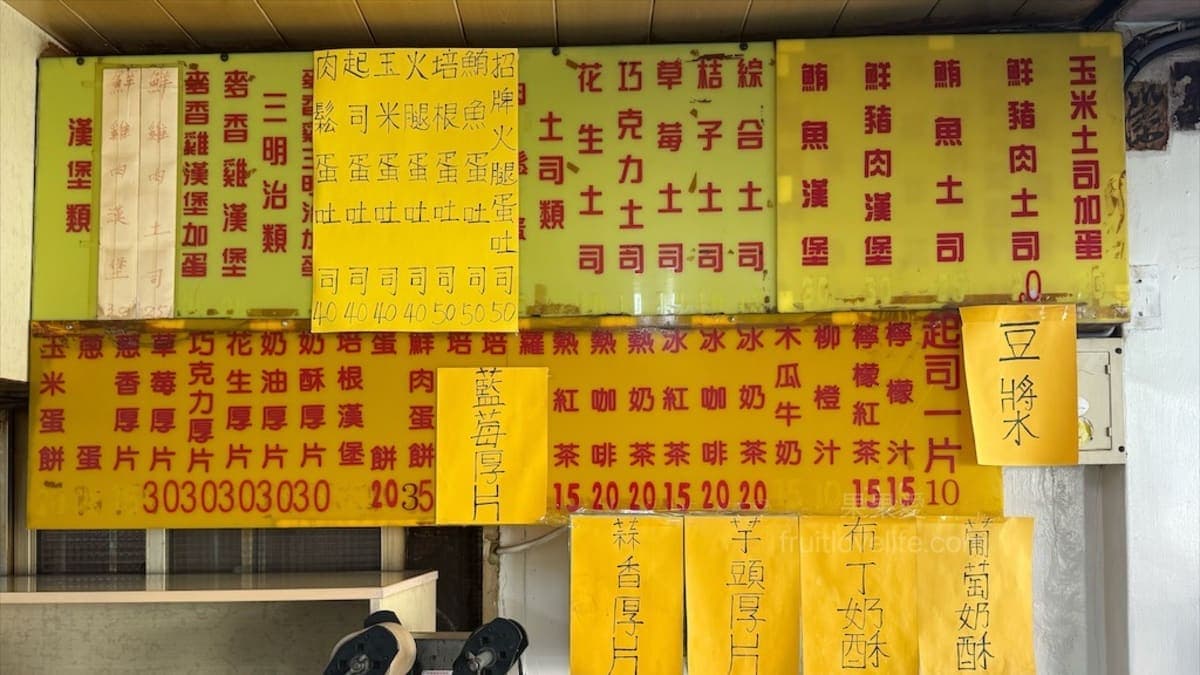 玉米土司加蛋
鮮豬肉土司
鮪魚土司
鮮豬肉漢堡
鮪魚漢堡
綜合土司
桔子土司
草莓土司
巧克力土司
花生土司
土司類
招牌火腿蛋吐司50
鮪魚蛋吐司50
培根蛋吐司50
火腿蛋吐司40
玉米蛋吐司40
起司蛋吐司40
肉鬆蛋吐司40
三明治類
麥香雞漢堡
麥香雞漢堡加蛋
鮮雞肉土司
鮮雞肉漢堡
漢堡類
豆漿
起司一片10
檸檬汁15
檸檬紅茶15
柳橙汁
木瓜牛奶
冰奶茶20
冰咖啡20
冰紅茶15
熱奶茶20
熱咖啡20
熱紅茶15
蘿
培
培
藍莓厚片
鮮肉蛋餅35
蛋餅20
培根漢堡
奶酥厚片30
奶油厚片30
花生厚片30
巧克力厚片30
草莓厚片30
蔥香厚片
蔥蛋
玉米蛋餅
葡萄奶酥
布丁奶酥
芋頭厚片
蒜香厚片
fruitlovelife.com